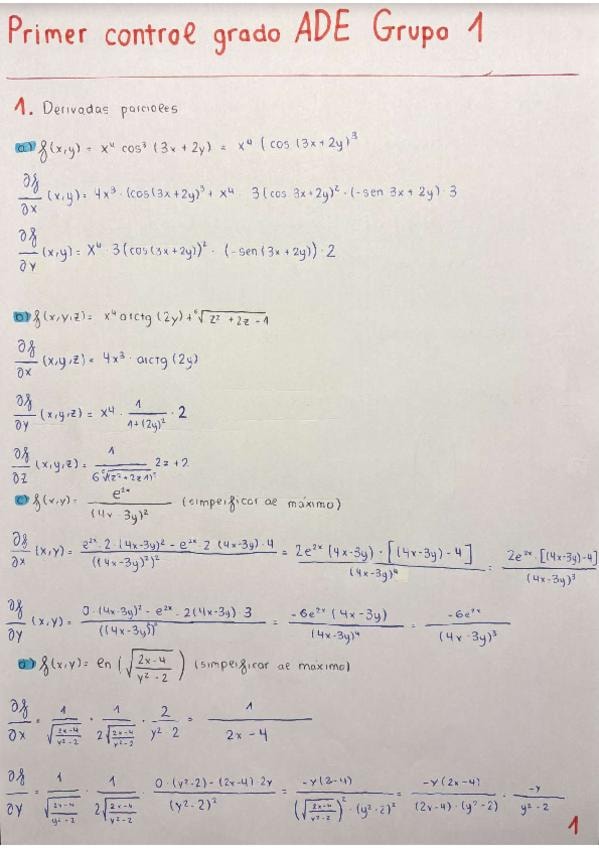 Primer control grado ADE Grupo 1
1. Derivadas parciales
a) f(x,y) = x⁴ cos³ (3x + 2y) = x⁴ (cos (3x + 2y)³
∂f/∂x (x,y) = 4x³ · (cos(3x+2y)³ + x⁴ · 3(cos 3x + 2y)² · (-sen 3x + 2y) · 3
∂f/∂y (x,y) = x⁴ · 3(cos(3x+2y))² · (-sen(3x+2y)) · 2
b) f(x,y,z) = x⁴ arctg (2y) + ⁶√(z² + 2z - 1)
∂f/∂x (x,y,z) = 4x³ · arctg (2y)
∂f/∂y (x,y,z) = x⁴ · 1/(1+(2y)²) · 2
∂f/∂z (x,y,z) = 1/(6 ⁶√(z²+2z-1)⁵) 2z + 2
c) f(x,y) = e²ˣ/(4x - 3y)² (simplificar al máximo)
∂f/∂x (x,y) = (e²ˣ · 2 · (4x-3y)² - e²ˣ · 2 (4x-3y) · 4)/((4x-3y)²)² = (2e²ˣ (4x-3y) · [(4x-3y) - 4])/(4x-3y)⁴ = (2e²ˣ · [(4x-3y)-4])/(4x-3y)³
∂f/∂y (x,y) = (0 · (4x-3y)² - e²ˣ · 2(4x-3y) · 3)/((4x-3y)²)² = (-6e²ˣ (4x-3y))/(4x-3y)⁴ = (-6e²ˣ)/(4x-3y)³
d) f(x,y) = ln (√((2x-4)/(y²-2))) (simplificar al máximo)
∂f/∂x = 1/√((2x-4)/(y²-2)) · 1/(2√((2x-4)/(y²-2))) · 2/(y²-2) = 1/(2x-4)
∂f/∂y = 1/√((2x-4)/(y²-2)) · 1/(2√((2x-4)/(y²-2))) · (0 · (y²-2) - (2x-4) · 2y)/(y²-2)² = (-y(2-4))/((√((2x-4)/(y²-2)))² · (y²-2)²) = (-y(2x-4))/((2x-4) · (y²-2)) · (-y)/(y²-2)
1